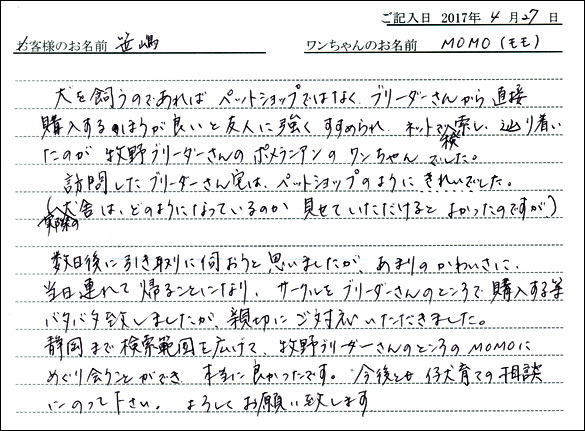 ご記入日 2017年 4月27日
お客様のお名前 笹嶋 ワンちゃんのお名前 MOMO(モモ)
犬を飼うのであれば ペットショップではなく、ブリーダーさんから直接
購入するほうが良いと友人に強くすすめられ、ネットで検索し、辿り着い
たのが 牧野ブリーダーさんの ポメラニアンの ワンちゃんでした。
訪問したブリーダーさん宅は、ペットショップのように きれいでした。
(実際の犬舎は、どのようになっているのか 見せていただけると よかったのですが。)
数日後に引き取りに伺おうと思いましたが、あまりのかわいさに、
当日連れて帰ることになり、サークルをブリーダーさんのところで購入する等
バタバタ致しましたが、親切にご対応いただきました。
静岡まで検索範囲を広げて、牧野ブリーダーさんのところのMOMOに
めぐり会うことができ 本当に良かったです。今後とも仔犬育ての相談
にのって下さい。よろしくお願い致します